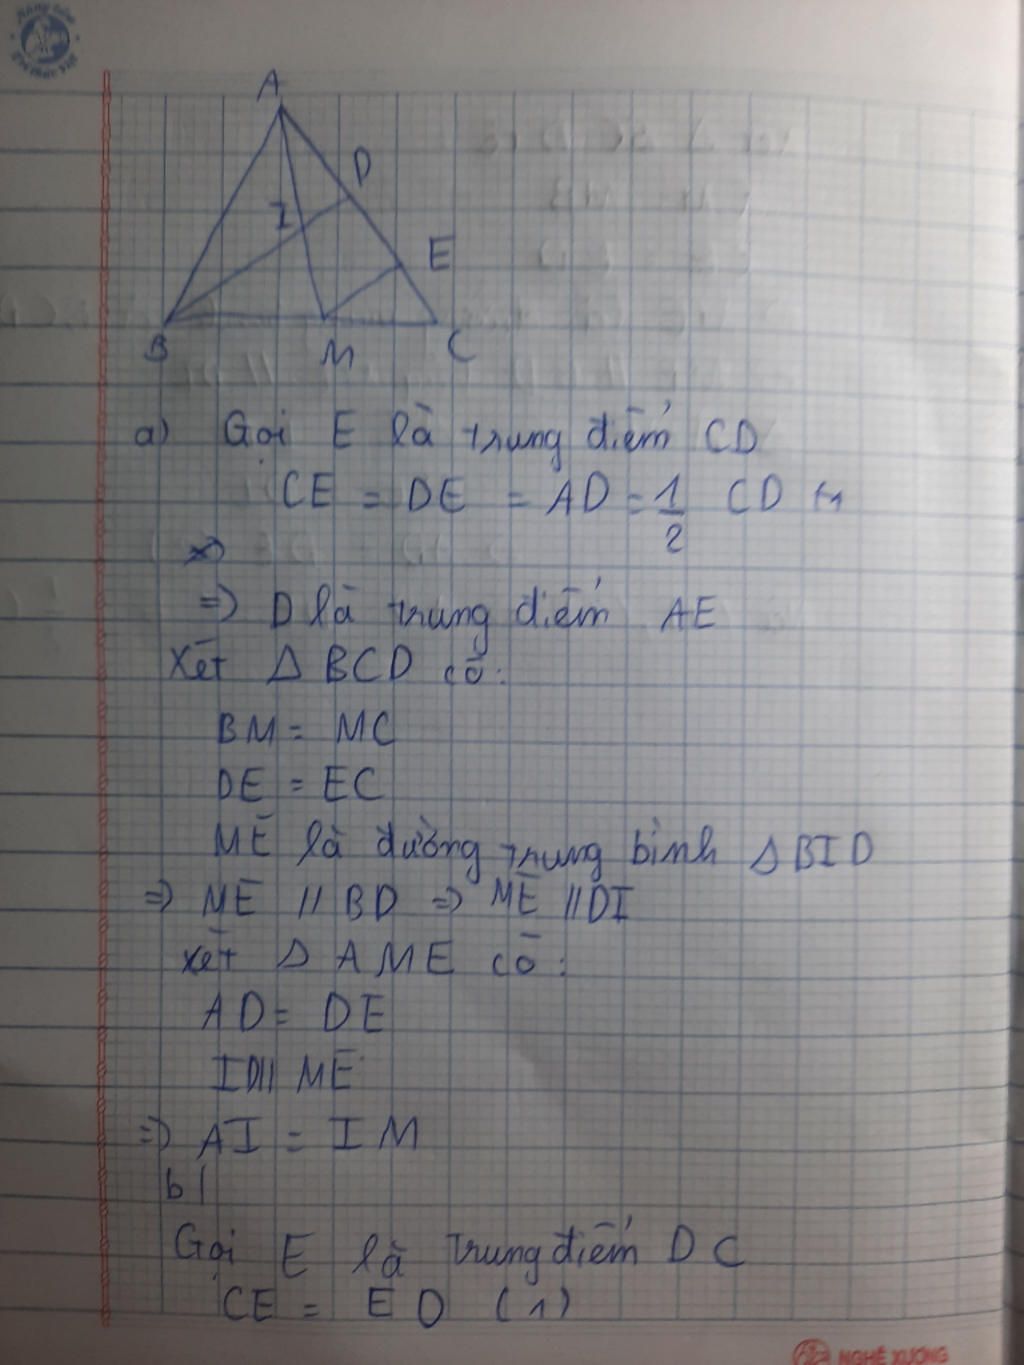 A
D
I
E
B
M
C
a) Gọi E là trung điểm CD
CE = DE = AD = 1/2 CD
=> D là trung điểm AE
Xét Δ BCD có:
BM = MC
DE = EC
ME là đường trung bình Δ BID
=> ME // BD => ME // DI
xét Δ AME có:
AD = DE
ID // ME
=> AI = IM
b)
Gọi E là trung điểm DC
CE = ED (1)
NGHỆ XƯƠNG